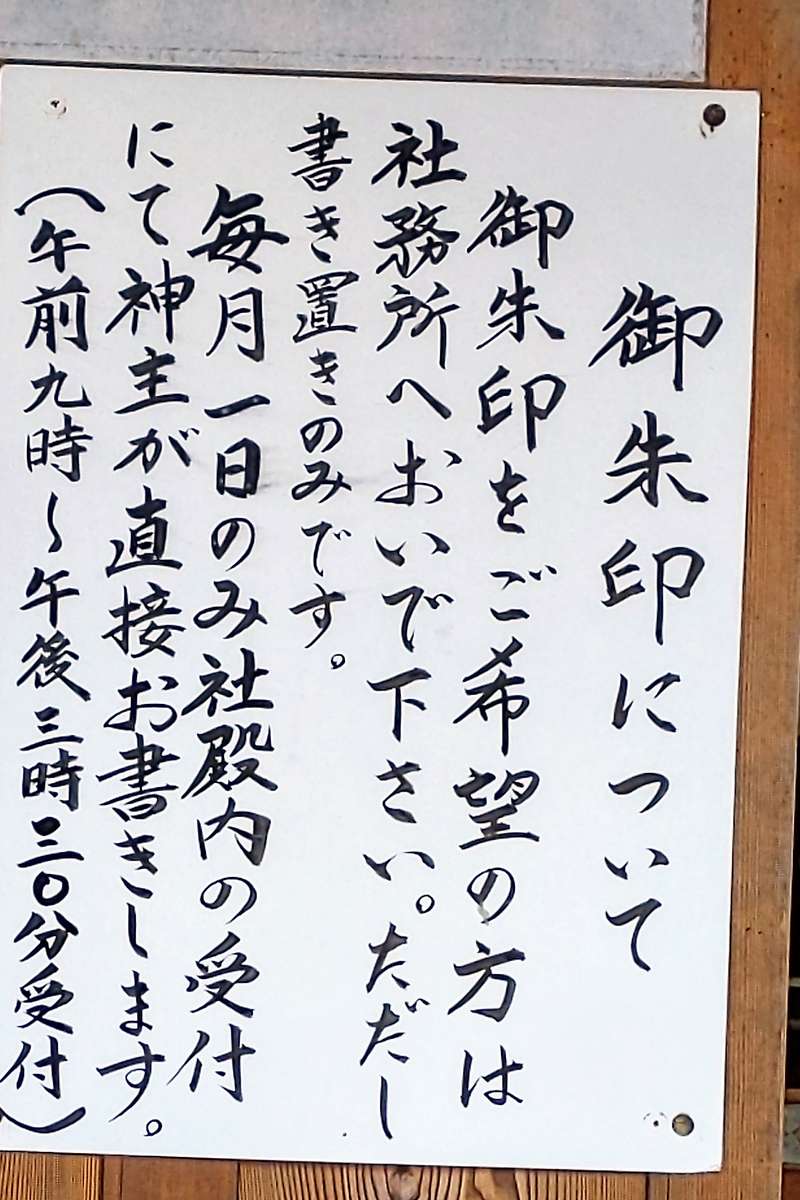 御朱印について
御朱印をご希望の方は
社務所へおいで下さい。ただし
書き置きのみです。
毎月一日のみ社殿内の受付
にて神主が直接お書きします。
(午前九時~午後三時三〇分受付)